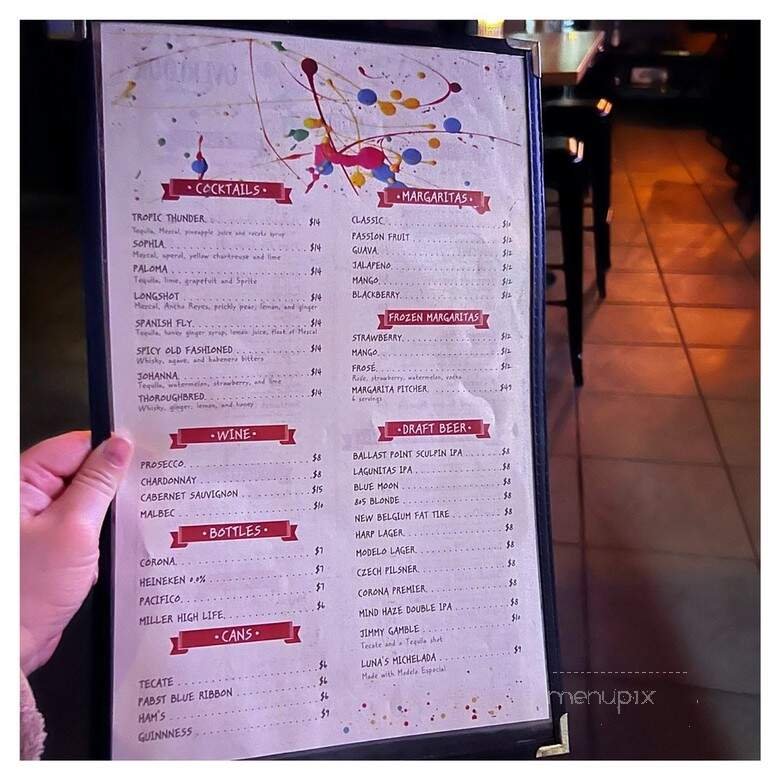 COCKTAILS
TROPIC THUNDER $14
Tequila, Mezcal, pineapple juice and rocoto syrup
SOPHIA $14
Mezcal, aperol, yellow chartreuse and lime
PALOMA $14
Tequila, lime, grapefruit and Sprite
LONGSHOT $14
Mezcal, Ancho Reyes, prickly pear, lemon, and ginger
SPANISH FLY $14
Tequila, honey ginger syrup, lemon juice, float of Mezcal
SPICY OLD FASHIONED $14
Whisky, agave, and habenero bitters
JOHANNA $14
Tequila, watermelon, strawberry, and lime
THOROUGHBRED $14
Whisky, ginger, lemon, and honey
WINE
PROSECCO $8
CHARDONNAY $8
CABERNET SAUVIGNON $15
MALBEC $10
BOTTLES
CORONA $7
HEINEKEN 0.0% $7
PACIFICO $7
MILLER HIGH LIFE $6
CANS
TECATE $6
PABST BLUE RIBBON $6
HAM'S $6
GUINNNESS $9
MARGARITAS
CLASSIC $10
PASSION FRUIT $12
GUAVA $12
JALAPENO $12
MANGO $12
BLACKBERRY $12
FROZEN MARGARITAS
STRAWBERRY $12
MANGO $12
FROSE $12
Rose, strawberry, watermelon, vodka
MARGARITA PITCHER $49
6 servings
DRAFT BEER
BALLAST POINT SCULPIN IPA $8
LAGUNITAS IPA $8
BLUE MOON $8
805 BLONDE $8
NEW BELGIUM FAT TIRE $8
HARP LAGER $8
MODELO LAGER $8
CZECH PILSNER $8
CORONA PREMIER $8
MIND HAZE DOUBLE IPA $8
JIMMY GAMBLE $10
Tecate and a Tequila shot
LUNA'S MICHELADA $9
Made with Modelo Especial
menupix